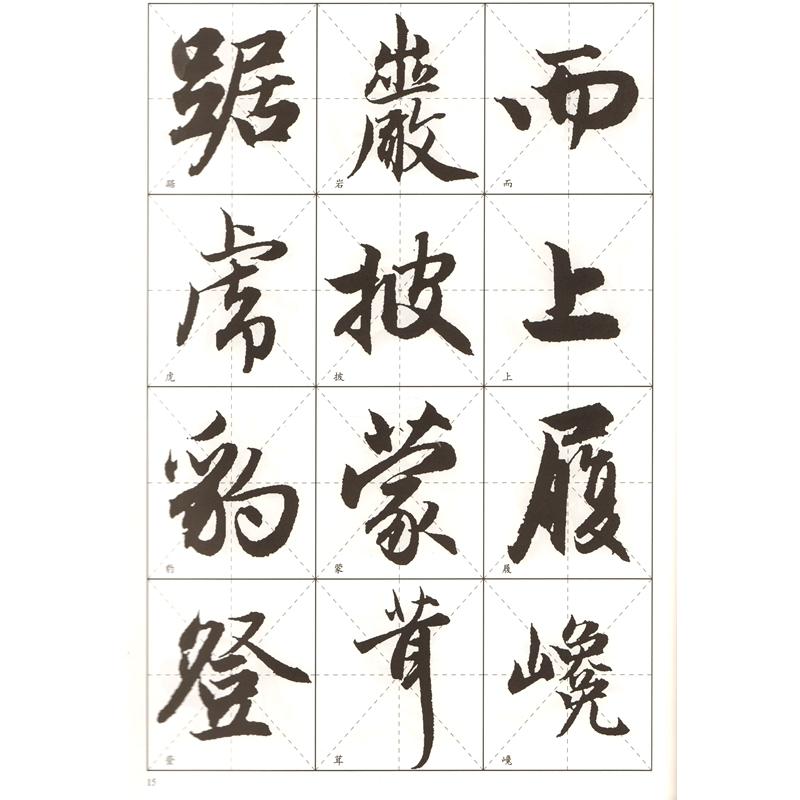 而上履巉
而上履巉
巖披蒙茸
岩披蒙茸
踞虎豹登
踞虎豹登
15